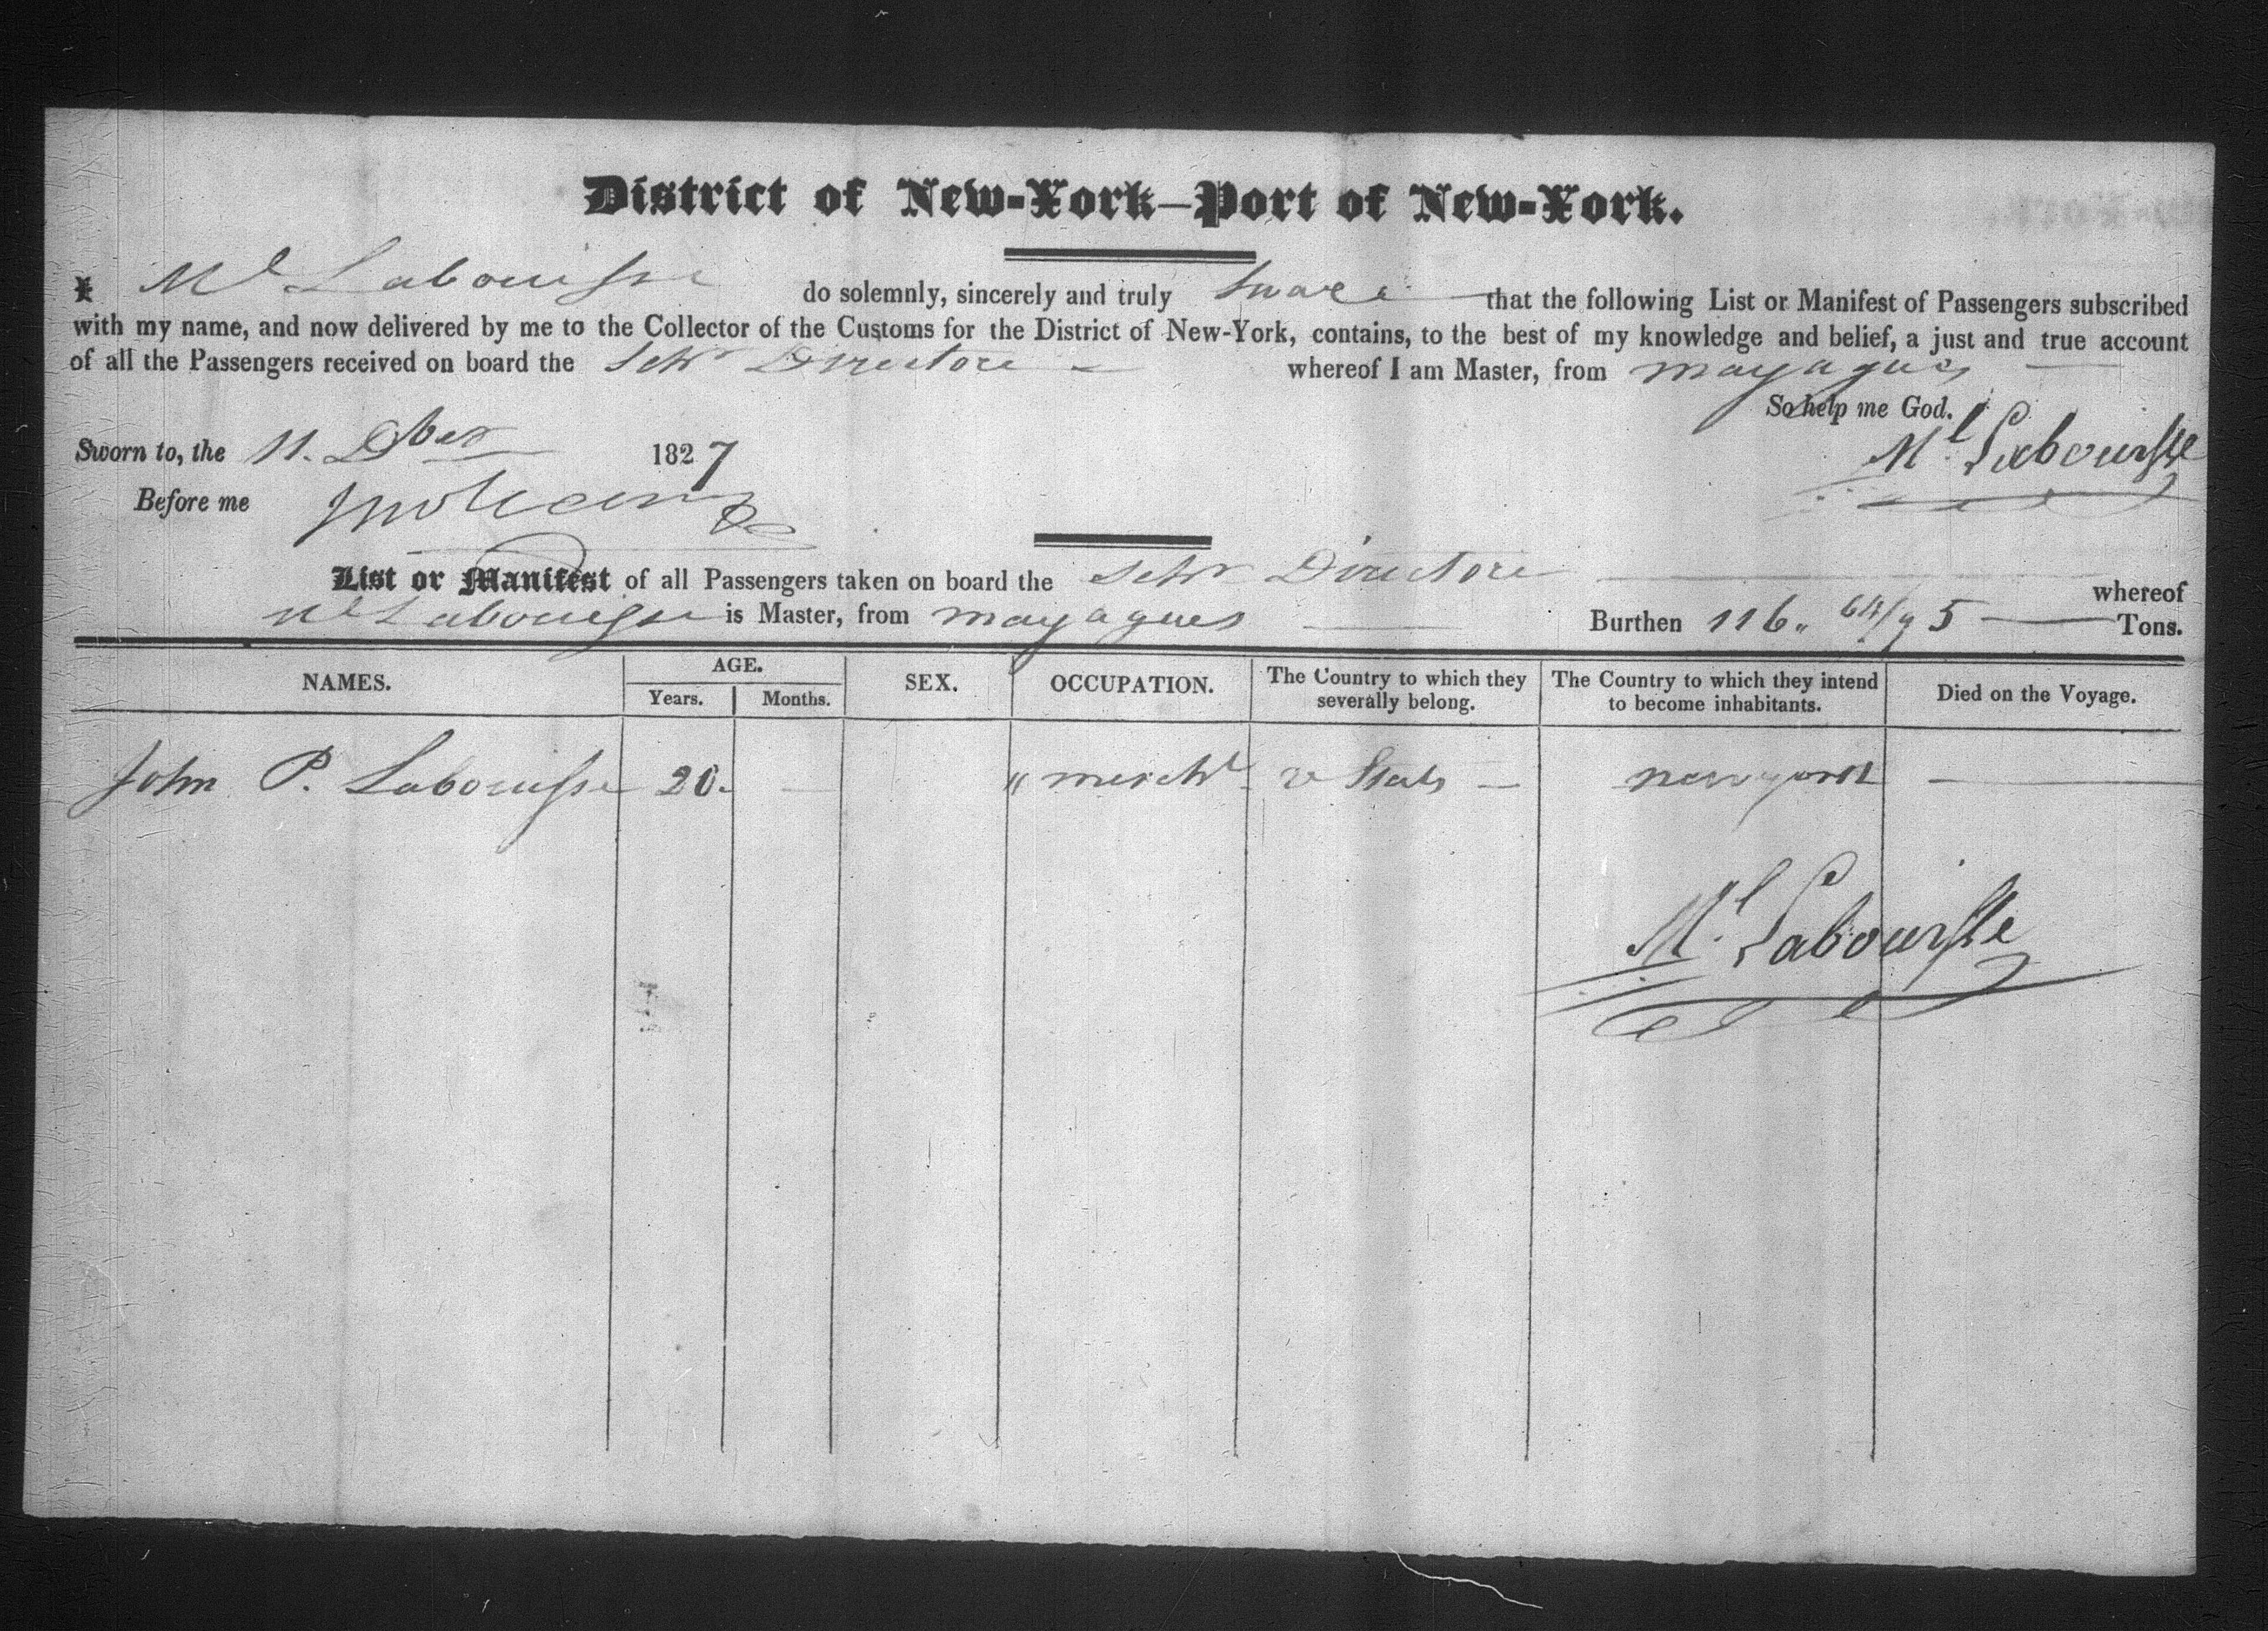 District of New-York—Port of New-York.
I Ml Labouisse do solemnly, sincerely and truly Sware that the following List or Manifest of Passengers subscribed
with my name, and now delivered by me to the Collector of the Customs for the District of New-York, contains, to the best of my knowledge and belief, a just and true account
of all the Passengers received on board the Schr Directore whereof I am Master, from mayagues
So help me God.
Sworn to, the 11. Dber 1827
Ml. Labouisse
Before me
List or Manifest of all Passengers taken on board the Schr Directore whereof
Ml Labouisse is Master, from mayagues Burthen 116 64/95 Tons.
NAMES. AGE. SEX. OCCUPATION. The Country to which they severally belong. The Country to which they intend to become inhabitants. Died on the Voyage.
Years. Months.
John P. Labouisse 20. — " mercht u States — new york —
Ml. Labouisse